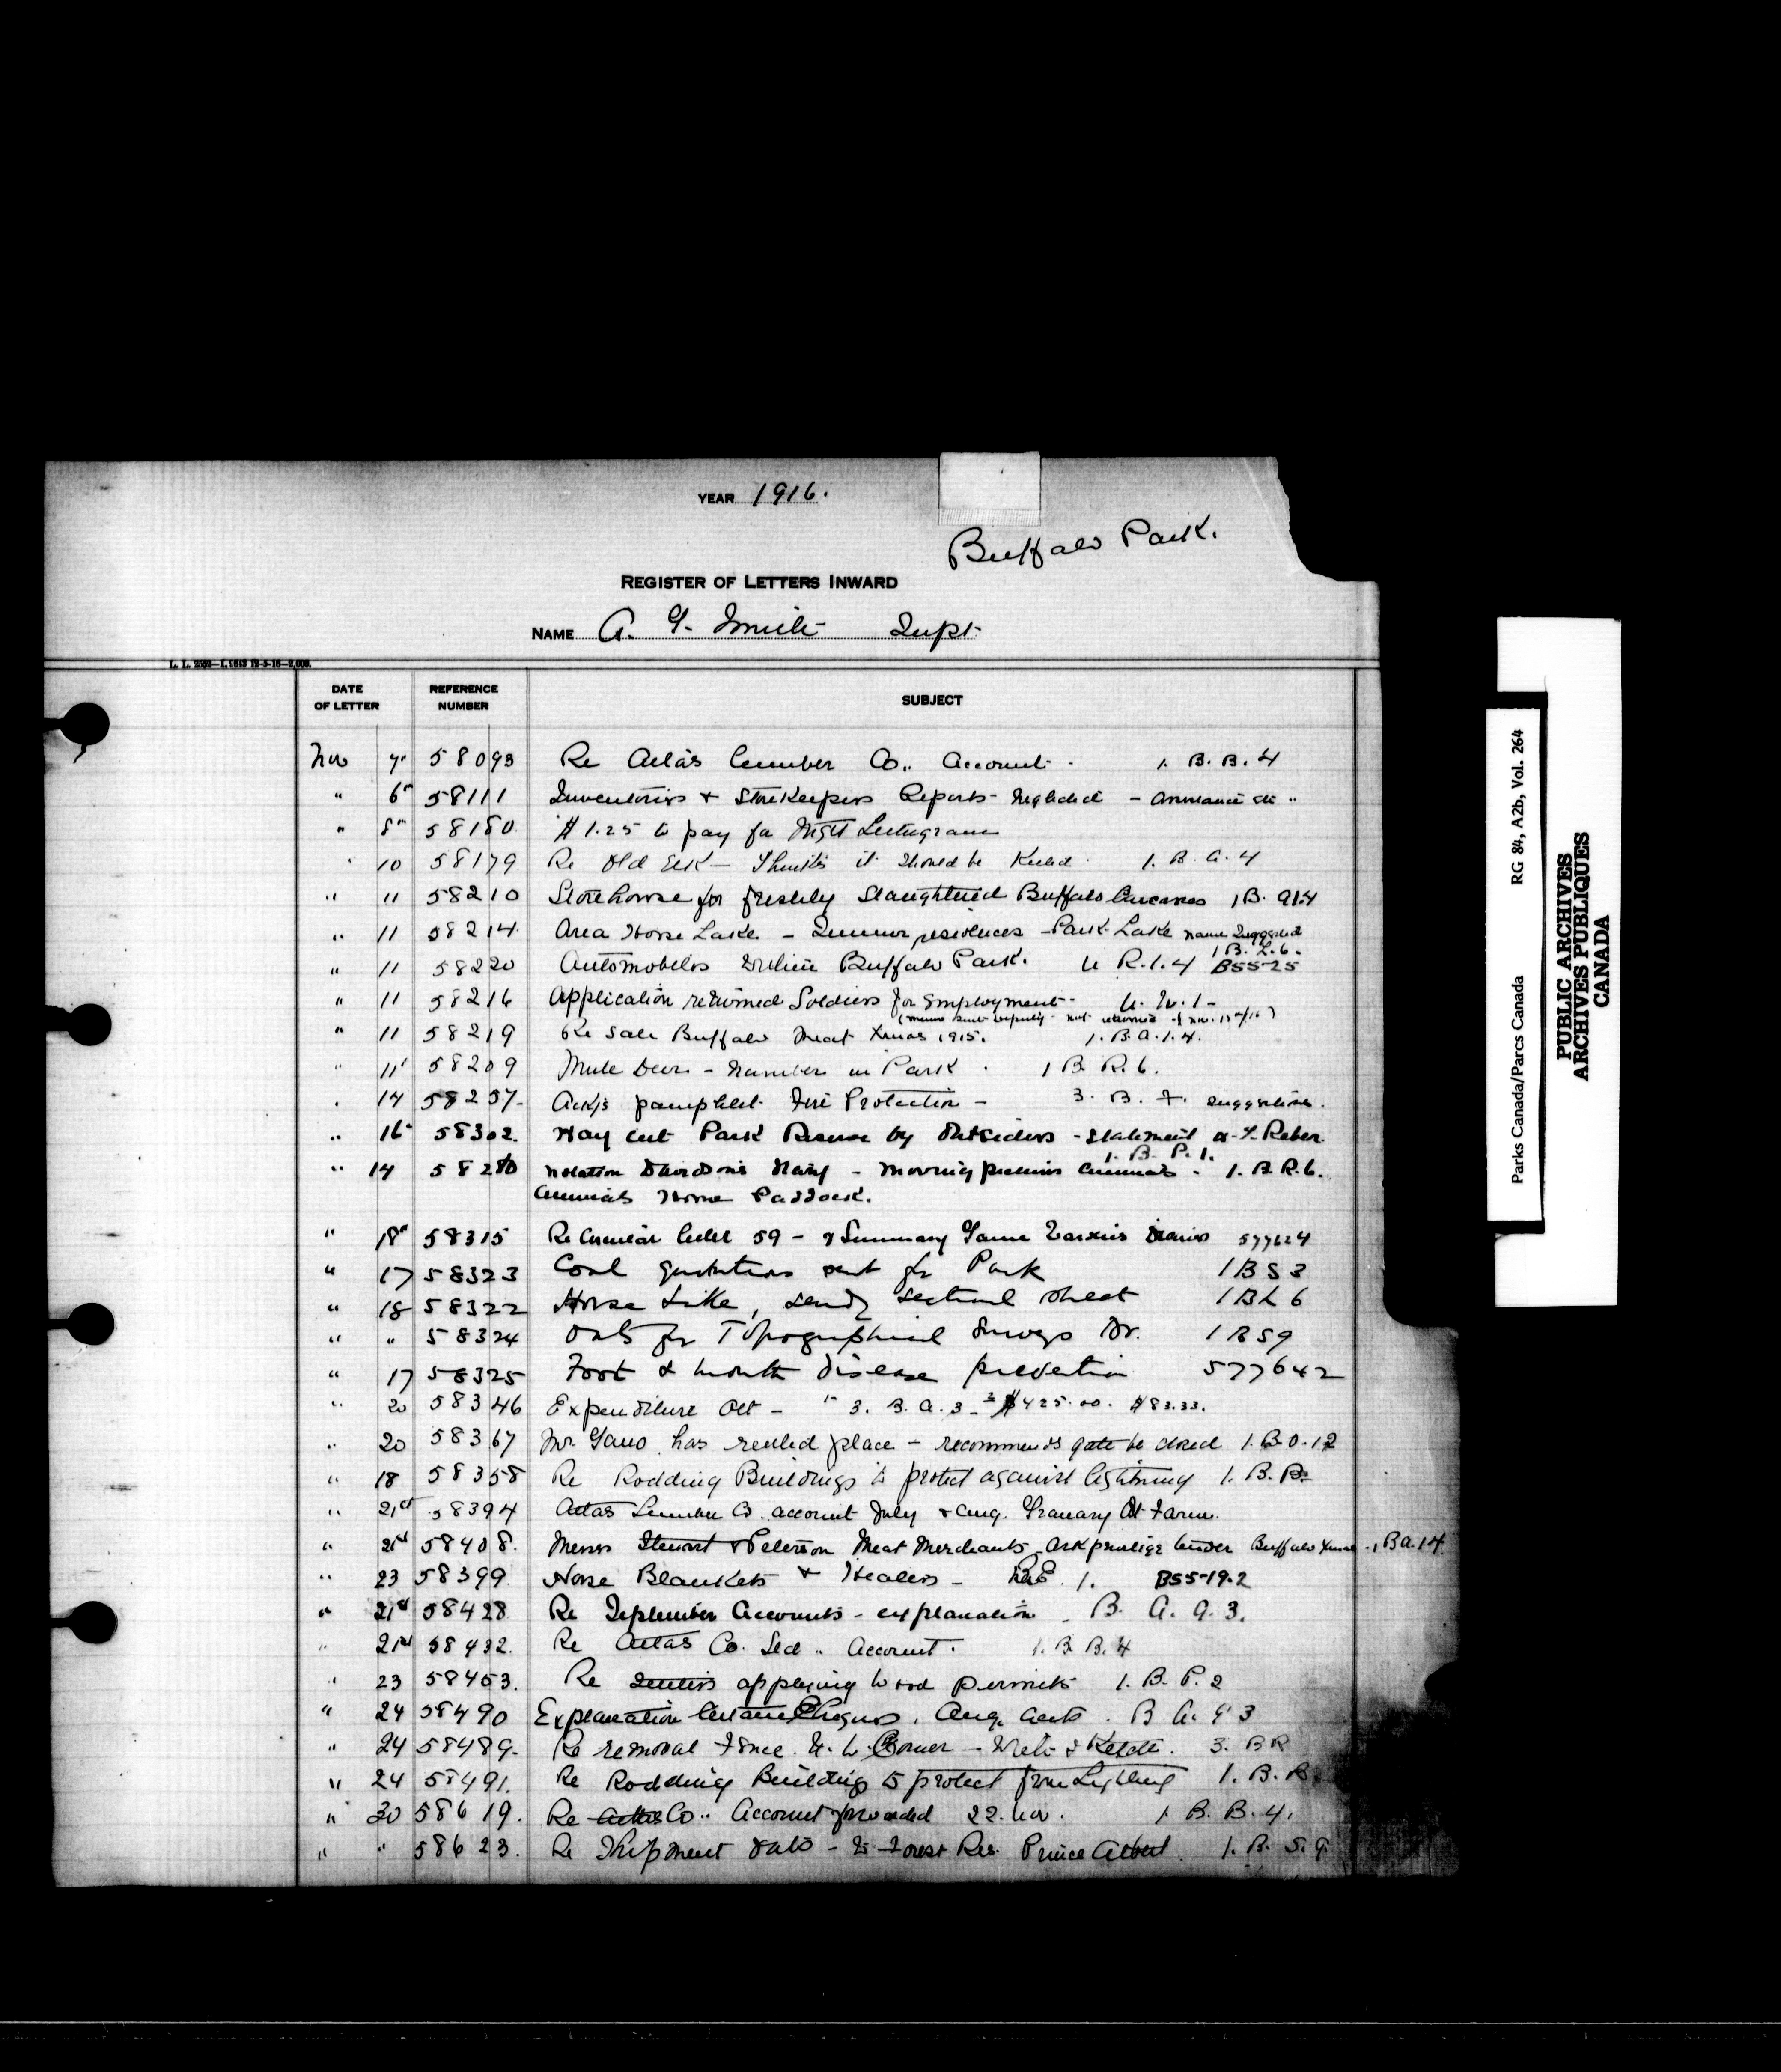 YEAR 1916.
Buffalo Park.
REGISTER OF LETTERS INWARD
NAME A. G. Smith Supt.
L. L. 2532—L. 1613 12-5-16—2,000.
DATE OF LETTER REFERENCE NUMBER SUBJECT
Nov 7" 58093 Re Atlas Lumber Co.. Account. 1. B. B. 4
" 6" 58111 Inventories & Storekeepers Reports - neglected -
" 8" 58180 $1.25 to pay for Night Lettergram
" 10 58179 Re Old Elk - Thinks it should be Killed. 1. B. A. 4
" 11 58210 Storehouse for freshly Slaughtered Buffalo Carcases 1B. A14
" 11 58214 Area Horse Lake - Summer residences - Park Lake name Suggested
1 B. L. 6.
" 11 58220 Automobiles within Buffalo Park. U R.1.4 BS5-25
" 11 58216 Application returned Soldiers for Employment - U. W. 1 -
" 11 58219 Re Sale Buffalo Meat Xmas 1915. 1. B. A. 1. 4.
" 11 58209 Mule Deer - Number in Park. 1 B. R. 6.
" 14 58257 Ack/s pamphlet Fire Protection - 3. B. F. suggestions.
" 16" 58302. Hay cut Park Reserve by Outsiders - Statement Reber.
1. B. P. 1.
" 14 58280 Notation Davidson's Diary - moving animals. 1. B. R. 6.
Animals Home Paddock.
" 18" 58315 Re Circular letter 59 - & Summary Game Wardens Diaries 577624
" 17 58323 Coal quotations sent for Park 1 B S 3
" 18 58322 Horse Lake, sends sectional sheet 1 B L 6
" " 58324 Oats for Topographical Surveys Br. 1 B S 9
" 17 58325 Foot & mouth disease prevention 577642
" 20 58346 Expenditure Oct - 3. B. A. 3 - $425.00. $83.33.
" 20 58367 Mr. Gano has rented place - recommends gate be closed 1. B. O. 12
" 18 58358 Re Rodding Buildings to protect against lightning 1. B. B.
" 21st 58394 Atlas Lumber Co. account July & Aug. Granary At Farm.
" 21st 58408. Messrs Stewart & Peterson Meat Merchants - Ask privilege tender Buffalo Xmas - 1 B A. 14
" 23 58399 Horse Blankets & Heaters - 1. BS5-19.2
" 21st 58428 Re September Accounts - explanation - B. A. 9. 3.
" 21st 58432. Re Atlas Co. Ltd.. Account. 1. B. B. 4
" 23 58453. Re Settlers applying wood permits 1. B. P. 2
" 24 58490 Explanation Certain Cheques. Aug. accts. B A. 9 3
" 24 58489. Re removal Fence N. W. Corner - 3. B R
" 24 58491. Re Rodding Buildings to protect from Lightng 1. B. B.
" 30 58619. Re Atlas Co.. Account forwarded 22. Nov. 1 B. B. 4.
" " 58623. Re Shipment oats - to Forest Res. Prince Albert. 1. B. S. 9
Parks Canada/Parcs Canada RG 84, A2b, Vol. 264
PUBLIC ARCHIVES
ARCHIVES PUBLIQUES
CANADA